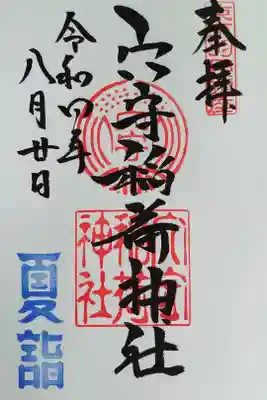 奉拝
穴守稲荷神社
令和四年
八月廿日
夏詣
穴守稲荷神社